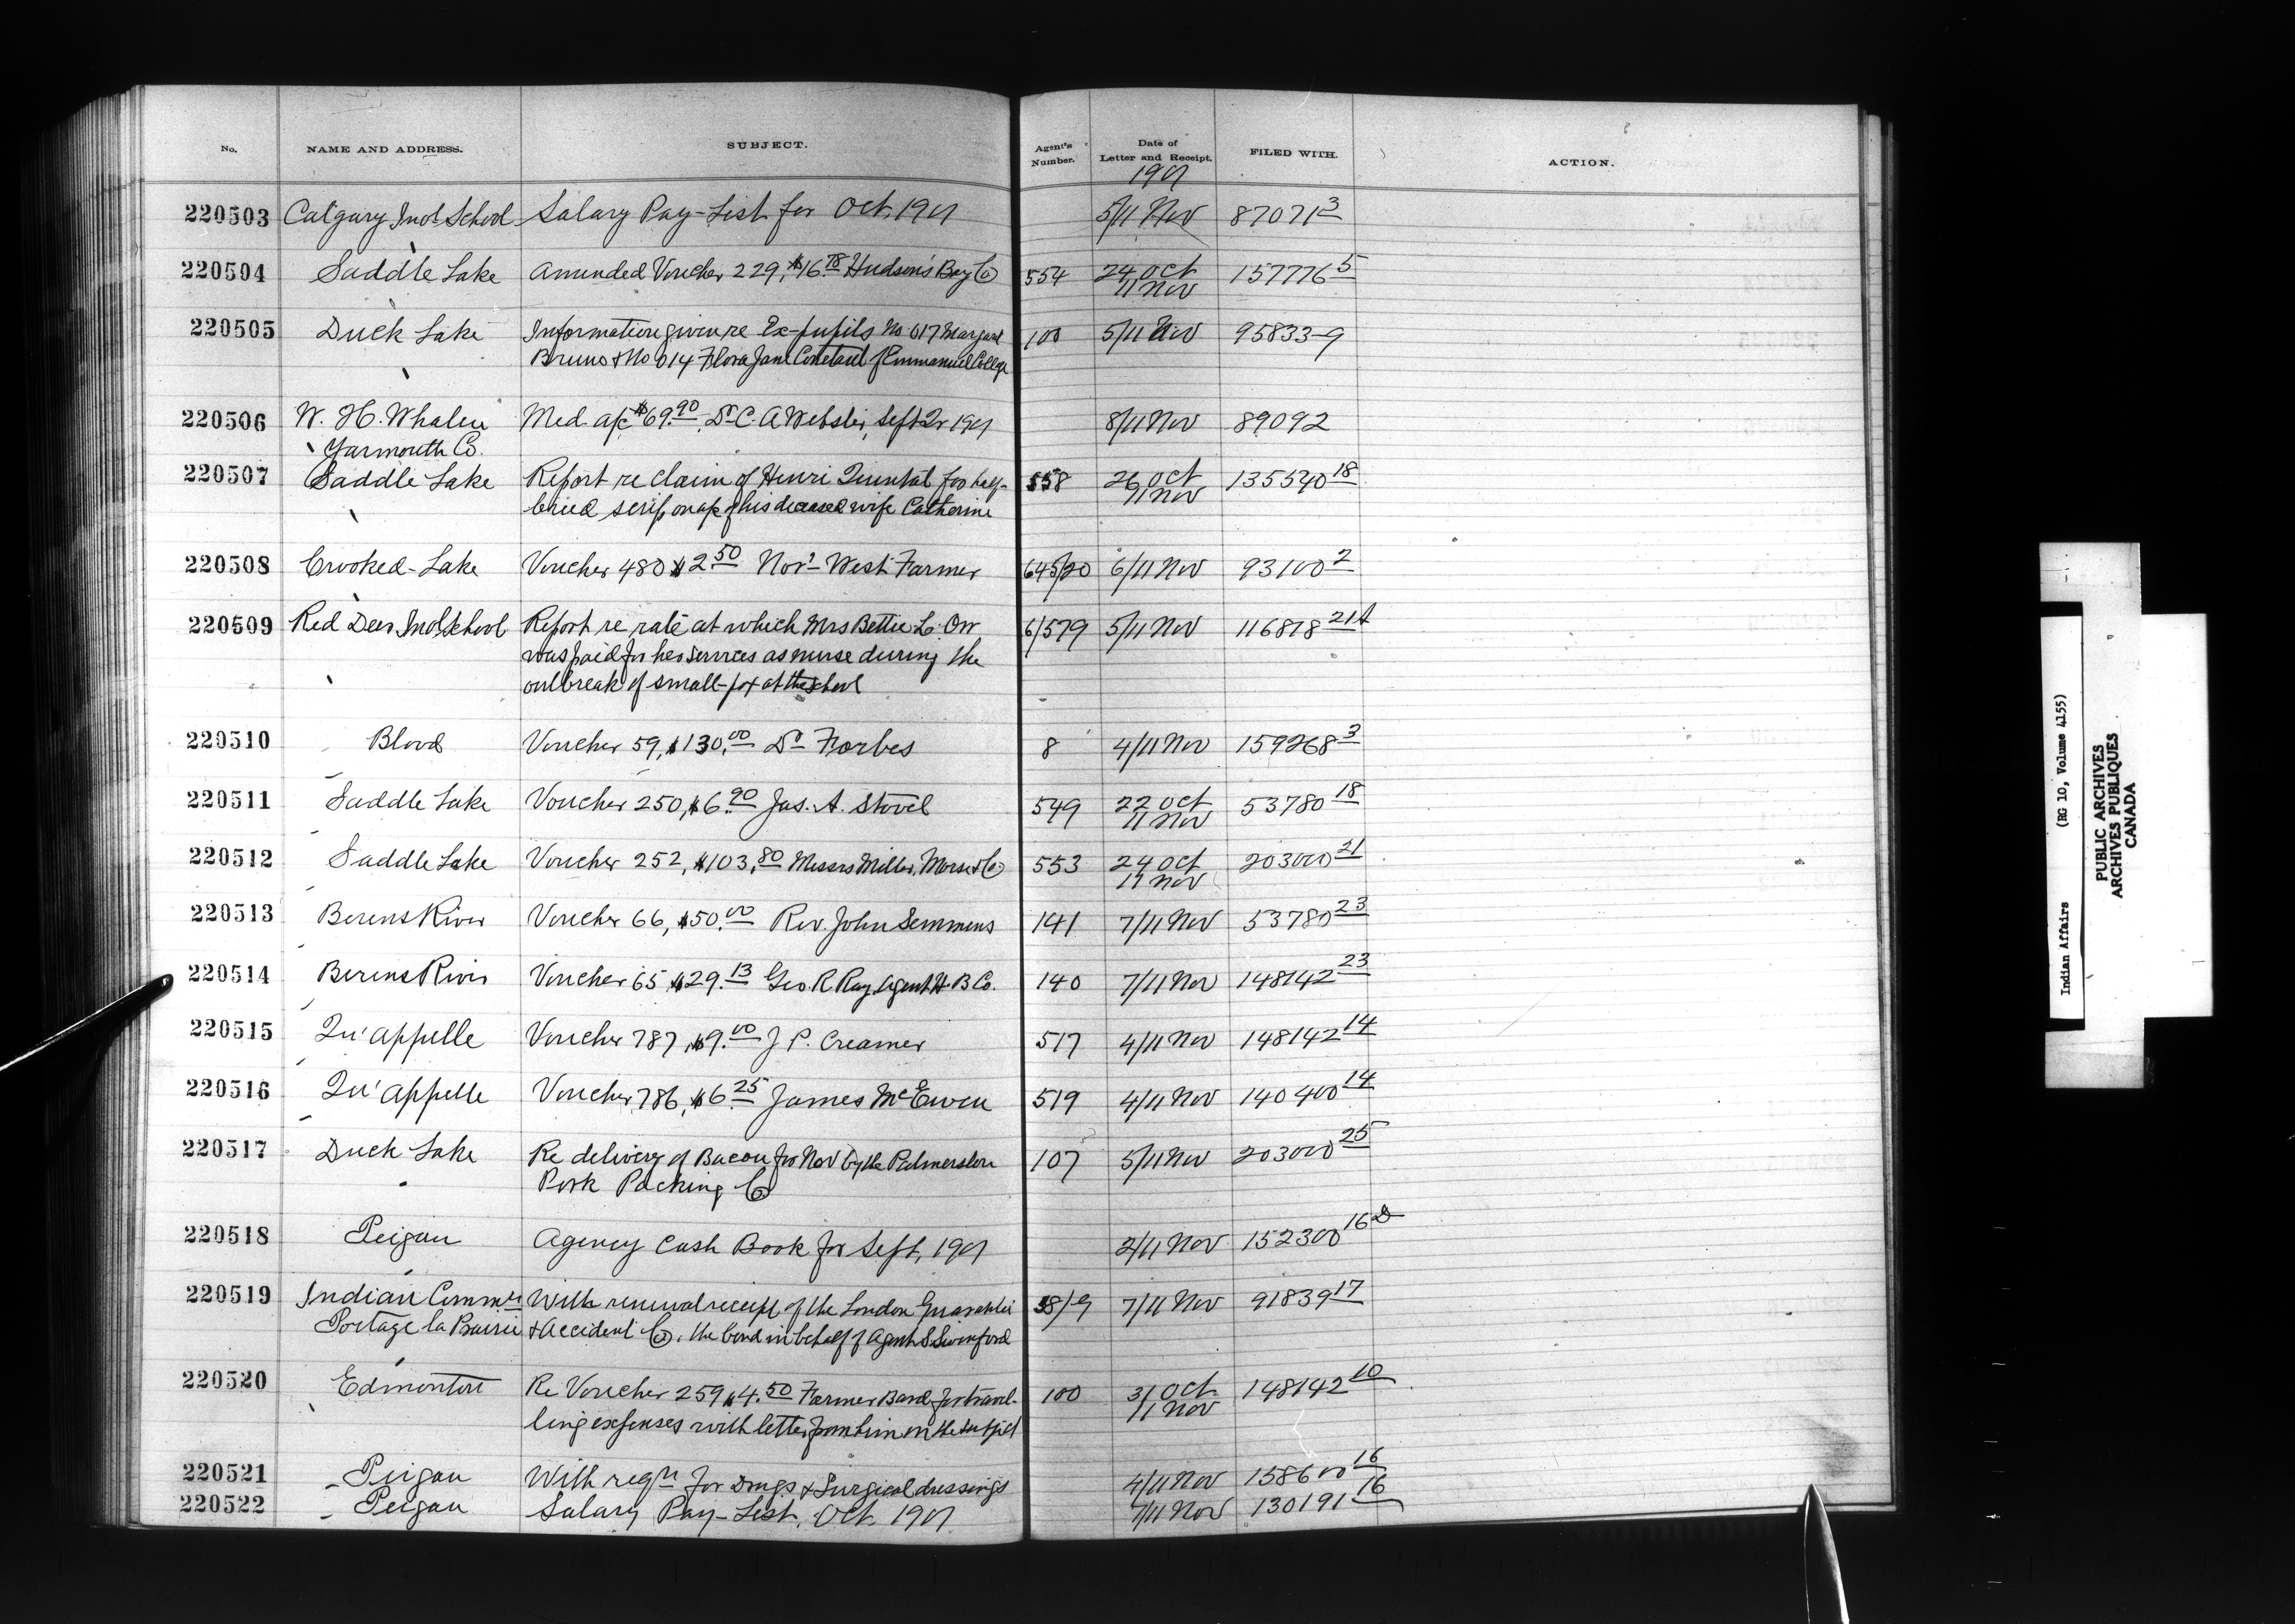 No. NAME AND ADDRESS. SUBJECT. Agent's Number. Date of Letter and Receipt. FILED WITH. ACTION.
1901
220503 Calgary Indl School Salary Pay-List for Oct. 1901 5/11 Nov 87071 3
220504 Saddle Lake Amended Voucher 229, $16.78 Hudson's Bay Co 554 24 Oct 157776 5
11 Nov
220505 Duck Lake Information given re Ex-pupils No 017 Margaret 100 5/11 Nov 95833-9
Bruno & No 014 Flora Jane Constant of Emmanuel College
220506 W. H. Whalen Med. a/c $69.90 Dr C. A Webster, Sept Qr 1901 8/11 Nov 89092
Yarmouth Co.
220507 Saddle Lake Report re claim of Henri Quintal for half- 558 26 Oct 135540 18
11 Nov
breed scrip on a/c of his deceased wife Catherine
220508 Crooked-Lake Voucher 480 $2.50 Nor'-West Farmer 645/20 6/11 Nov 93100 2
220509 Red Deer Indl School Report re rate at which Mrs Bettie L. Orr 6/579 5/11 Nov 116818 21A
was paid for her services as nurse during the
outbreak of small-pox at the school
220510 Blood Voucher 59, $130.00 Dr Forbes 8 4/11 Nov 159268 3
220511 Saddle Lake Voucher 250, $6.90 Jas. A. Stovel 549 22 Oct 53780 18
11 Nov
220512 Saddle Lake Voucher 252, $103.80 Messrs Miller, Morse & Co 553 24 Oct 203000 21
11 Nov
220513 Berens River Voucher 66, $50.00 Rev. John Semmens 141 7/11 Nov 53780 23
220514 Berens River Voucher 65 $29.13 Geo. R Ray Agent H. B Co. 140 7/11 Nov 148142 23
220515 Qu'appelle Voucher 787, $9.00 J P. Creamer 517 4/11 Nov 148142 14
220516 Qu'appelle Voucher 786, $6.25 James McEwen 519 4/11 Nov 140400 14
220517 Duck Lake Re delivery of Bacon for Nov by the Palmerston 107 5/11 Nov 203000 25
Pork Packing Co
220518 Peigan Agency Cash Book for Sept, 1901 2/11 Nov 152300 16
220519 Indian Commr With renewal receipt of the London Guarantee 38/9 7/11 Nov 91839 17
Portage la Prairie & Accident Co. the bond in behalf of Agent S. Swinford
220520 Edmonton Re Voucher 259 $4.50 Farmer Bard for travel- 100 31 Oct 148142 10
11 Nov
ling expenses with letter from him on the subject
220521 Peigan With reqn for Drugs & Surgical dressings 4/11 Nov 158600 16
220522 Peigan Salary Pay-List, Oct. 1901 7/11 Nov 130191 16
Indian Affairs (RG 10, Volume 4155)
PUBLIC ARCHIVES
ARCHIVES PUBLIQUES
CANADA